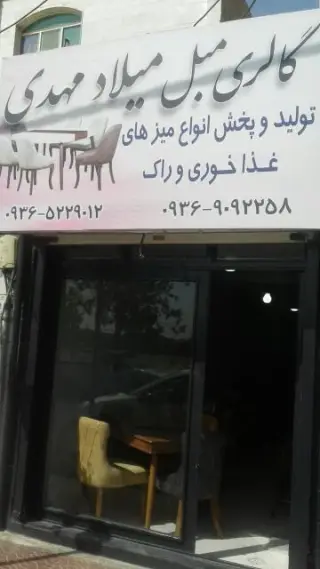 گالری مبل میلاد مهدی
تولید و پخش انواع میز های
غذاخوری و راک
۰۹۳۶-۹۰۹۲۲۵۸
۰۹۳۶-۵۲۲۹۰۱۲